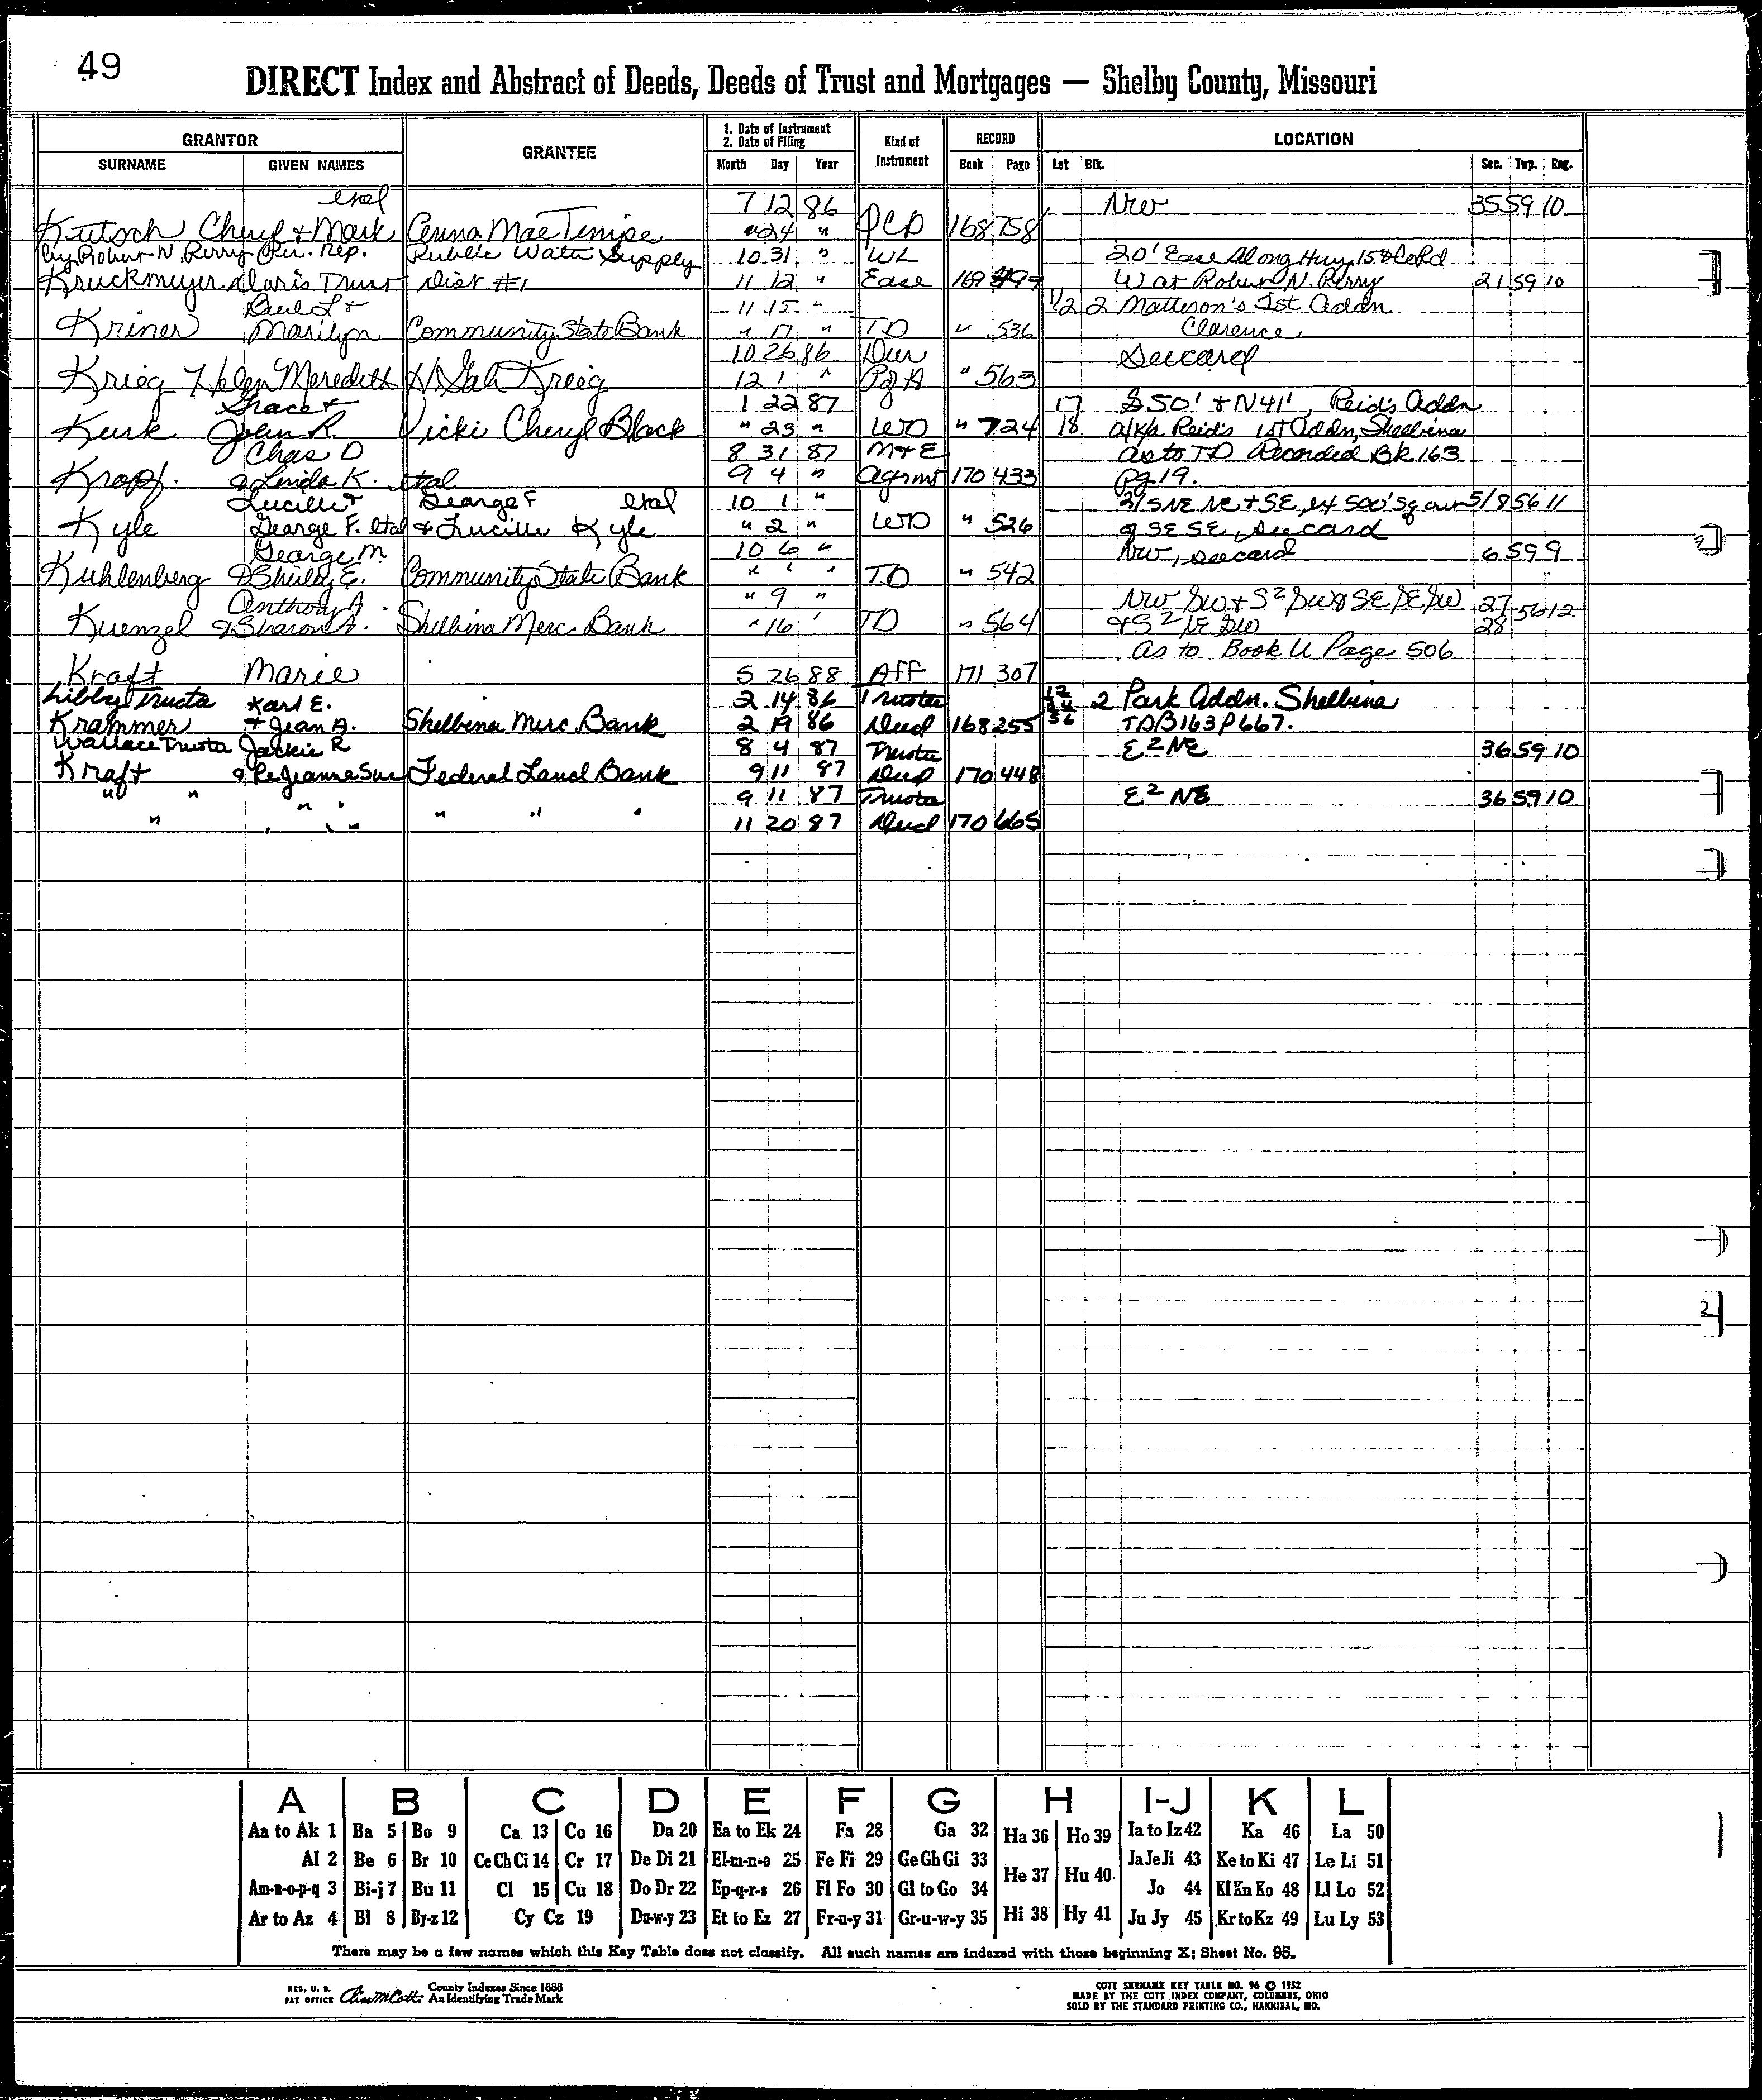 49
DIRECT Index and Abstract of Deeds, Deeds of Trust and Mortgages — Shelby County, Missouri
GRANTOR GRANTEE 1. Date of Instrument 2. Date of Filing Kind of Instrument RECORD LOCATION
SURNAME GIVEN NAMES Month Day Year Book Page Lot Blk. Sec. Twp. Rng.
etal 7 12 86 NW 35 59 10
Kutsch Cheryl & Mark Anna Mae " 24 " QCD 168 758
by Robert N. Perry Per. Rep. Public Water Supply 10 31 " WL 20' Ease Along Hwy 15 & Co Rd
Kruckmeyer Doris Trust Dist #1 11 12 " Ease 169 W at Robert N. Perry 21 59 10
Paul L & 11 15 " 1/2 2 Matteson's 1st Addn
Kriner Marilyn Community State Bank " 17 " TD " 536 Clarence
10 26 86 Dur See card
Krieg Helen Meredith H. Krieg 12 1 " Pg A " 563
Grace & 1 22 87 17 S 50' & N 41', Reid's Addn
Kurk John R. Vicki Cheryl Black " 23 " WD " 724 18 a/k/a Reid's 1st Addn, Shelbina
Chas D 8 31 87 M+E As to TD Recorded Bk 163
Kropf & Linda K. etal 9 4 " Agrmt 170 433 Pg 19.
Lucille & George F etal 10 1 " NE & SE, 500' Sq 5/8 56 11
Kyle George F. etal & Lucille Kyle " 2 " WD " 526 SE SE, See card
George M. 10 6 " NW, see card 6 59 9
Kuhlenberg & Shirley E. Community State Bank " " " TD " 542
Anthony A. " 9 " NW SW & S2 SW & SE SE SW 27 56 12
Kuenzel & Sharon A. Shelbina Merc. Bank " 16 ' TD " 564 & S2 NE SW 28
As to Book U Page 506
Kraft Marie 5 26 88 Aff 171 307
Libby Trustee Karl E. 2 14 86 Trustee 12 34 2 Park Addn. Shelbina
Krammer & Jean A. Shelbina Merc. Bank 2 19 86 Deed 168 255 56 TDB 163 P 667.
Wallace Trustee Jackie R 8 4 87 Trustee E2 NE 36 59 10
Kraft & LeJeanne Sue Federal Land Bank 9 11 87 Deed 170 448
" " " " 9 11 87 Trustee E2 NE 36 59 10
" " " " " 11 20 87 Deed 170 665
A B C D E F G H I-J K L
Aa to Ak 1 Ba 5 Bo 9 Ca 13 Co 16 Da 20 Ea to Ek 24 Fa 28 Ga 32 Ha 36 Ho 39 Ia to Iz 42 Ka 46 La 50
Al 2 Be 6 Br 10 Ce Ch Ci 14 Cr 17 De Di 21 El-m-n-o 25 Fe Fi 29 Ge Gh Gi 33 He 37 Hu 40 Ja Je Ji 43 Ke to Ki 47 Le Li 51
Am-n-o-p-q 3 Bi-j 7 Bu 11 Cl 15 Cu 18 Do Dr 22 Ep-q-r-s 26 Fl Fo 30 Gl to Go 34 Jo 44 Kl Kn Ko 48 Ll Lo 52
Ar to Az 4 Bl 8 By-z 12 Cy Cz 19 Du-w-y 23 Et to Ez 27 Fr-u-y 31 Gr-u-w-y 35 Hi 38 Hy 41 Ju Jy 45 Kr to Kz 49 Lu Ly 53
There may be a few names which this Key Table does not classify. All such names are indexed with those beginning X; Sheet No. 95.
REG. U. S. PAT OFFICE County Indexes Since 1888 An Identifying Trade Mark
COTT SURNAME KEY TABLE NO. 96 © 1952
MADE BY THE COTT INDEX COMPANY, COLUMBUS, OHIO
SOLD BY THE STANDARD PRINTING CO., HANNIBAL, MO.